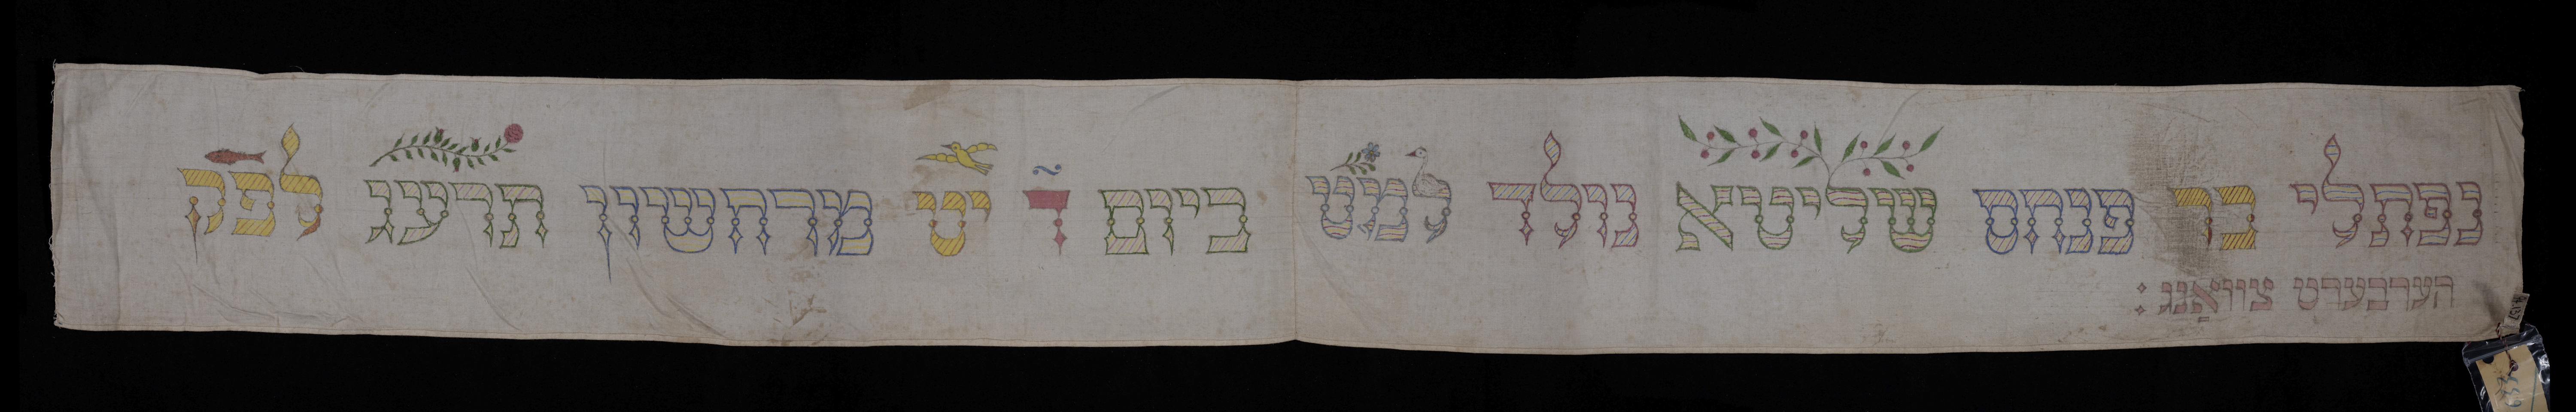 נפתלי בר פנחס שליטא נולד למט ביום ד יט מרחשון תרעג לפק
הערבערט צוואַנג :